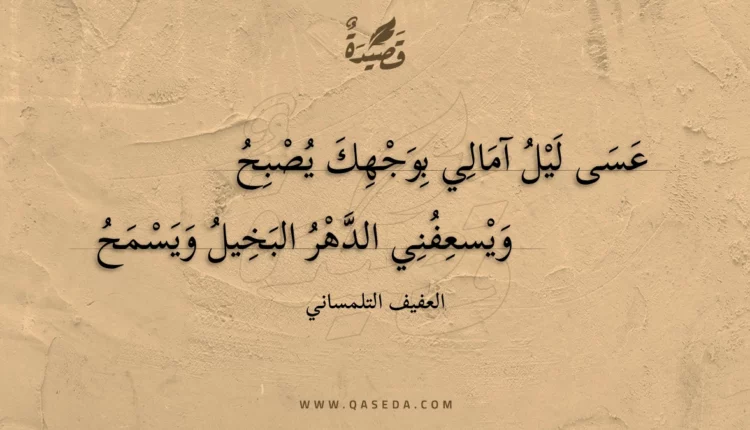 قَصِيدَةٌ
عَسَى لَيْلُ آمَالِي بِوَجْهِكَ يُصْبِحُ
وَيْسعِفُنِي الدَّهْرُ البَخِيلُ وَيَسْمَحُ
العفيف التلمساني
WWW.QASEDA.COM